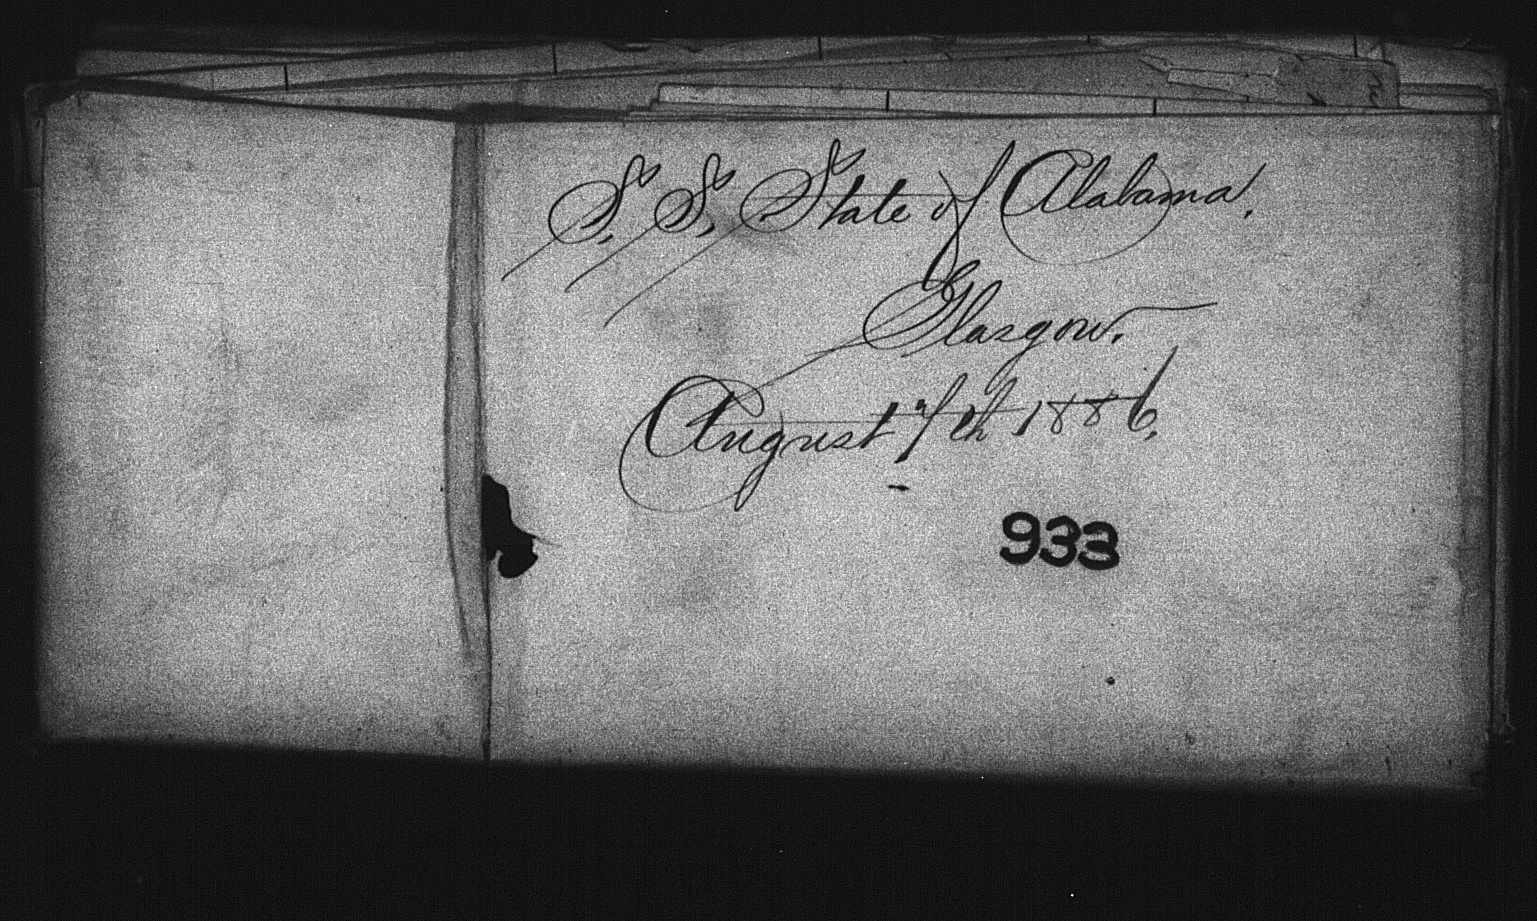 S. S. State of Alabama.
Glasgow.
August 7th 1886.
933